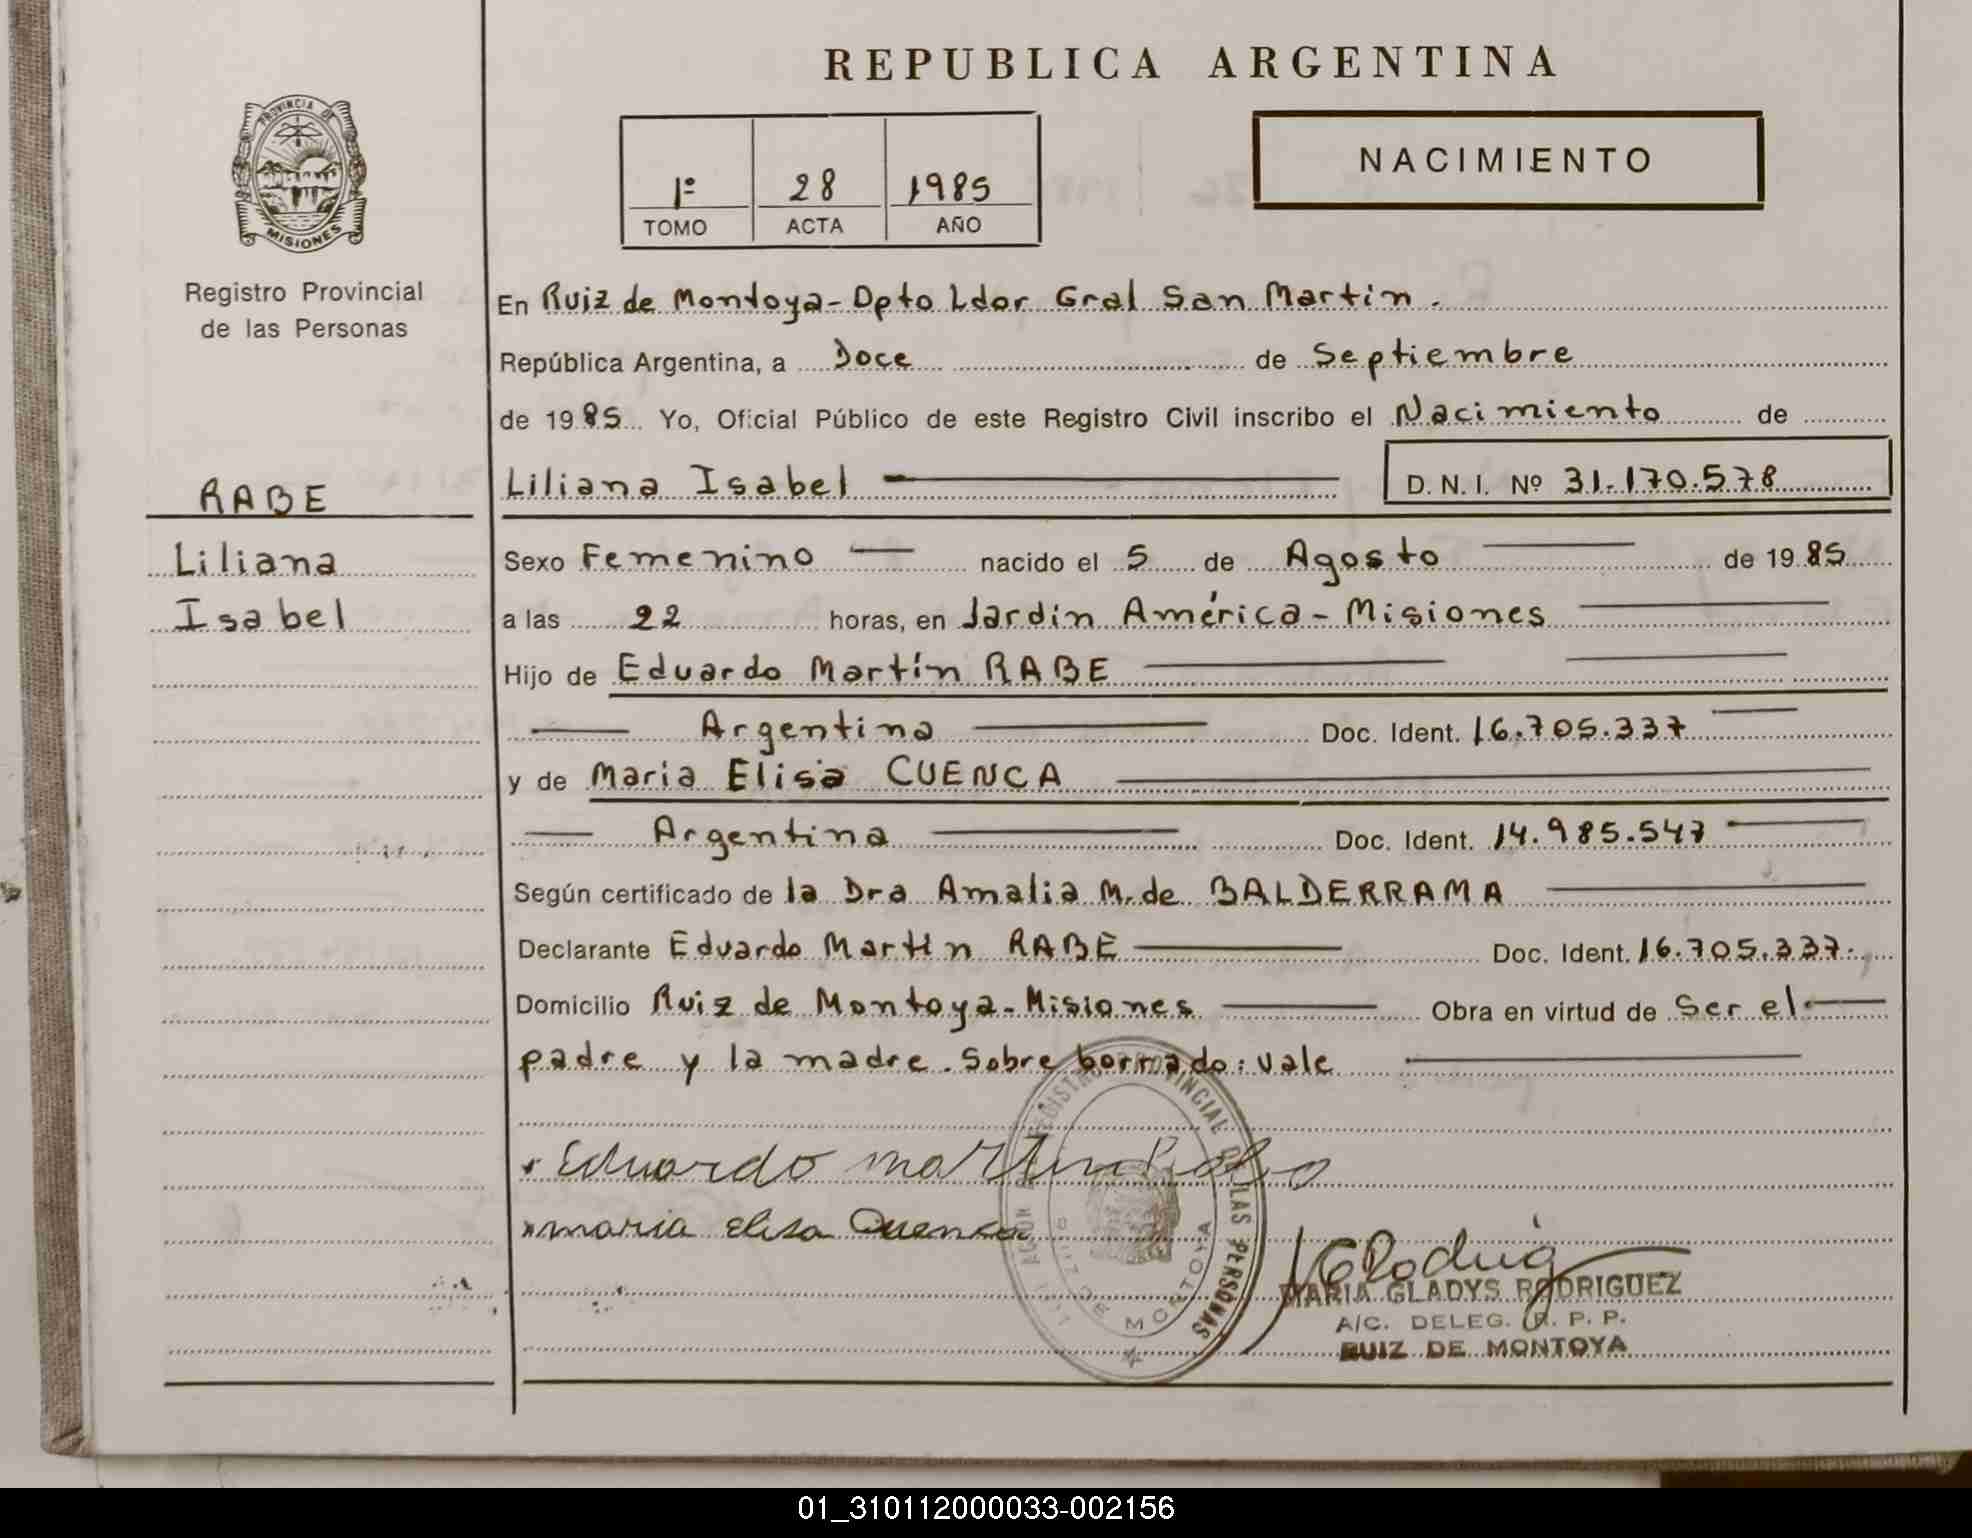 REPUBLICA ARGENTINA
PROVINCIA DE
MISIONES
Registro Provincial
de las Personas
1º 28 1985
TOMO ACTA AÑO
NACIMIENTO
En Ruiz de Montoya-Dpto Ldor Gral San Martin.
República Argentina, a Doce de Septiembre
de 1985 Yo, Oficial Público de este Registro Civil inscribo el Nacimiento de
RABE
Liliana Isabel D.N.I. Nº 31.170.578
Liliana
Isabel
Sexo Femenino nacido el 5 de Agosto de 1985
a las 22 horas, en Jardín América-Misiones
Hijo de Eduardo Martín RABE
Argentina Doc. Ident. 16.705.337
y de Maria Elisa CUENCA
Argentina Doc. Ident. 14.985.547
Según certificado de la Dra Amalia M. de BALDERRAMA
Declarante Eduardo Martín RABE Doc. Ident. 16.705.337.
Domicilio Ruiz de Montoya-Misiones Obra en virtud de Ser el
padre y la madre. Sobre borrado: vale
Eduardo martin Rabe
maria elisa Cuenca
REGISTRO PROVINCIAL DE LAS PERSONAS
RUIZ DE MONTOYA
MARIA GLADYS RODRIGUEZ
A/C. DELEG. R. P. P.
RUIZ DE MONTOYA
01_310112000033-002156